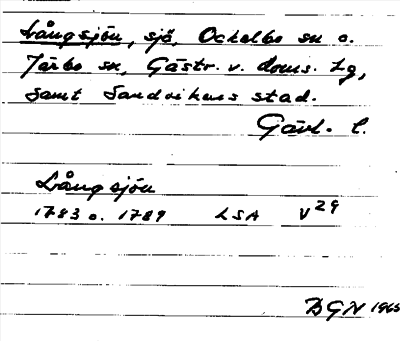 Långsjön, sjö, Ockelbo sn o.
Järbo sn, Gästr. v. doms. tg,
samt Sandvikens stad.
Gävl. l.
Långsjön
1783 o. 1789 LSA V29
BGN 1965